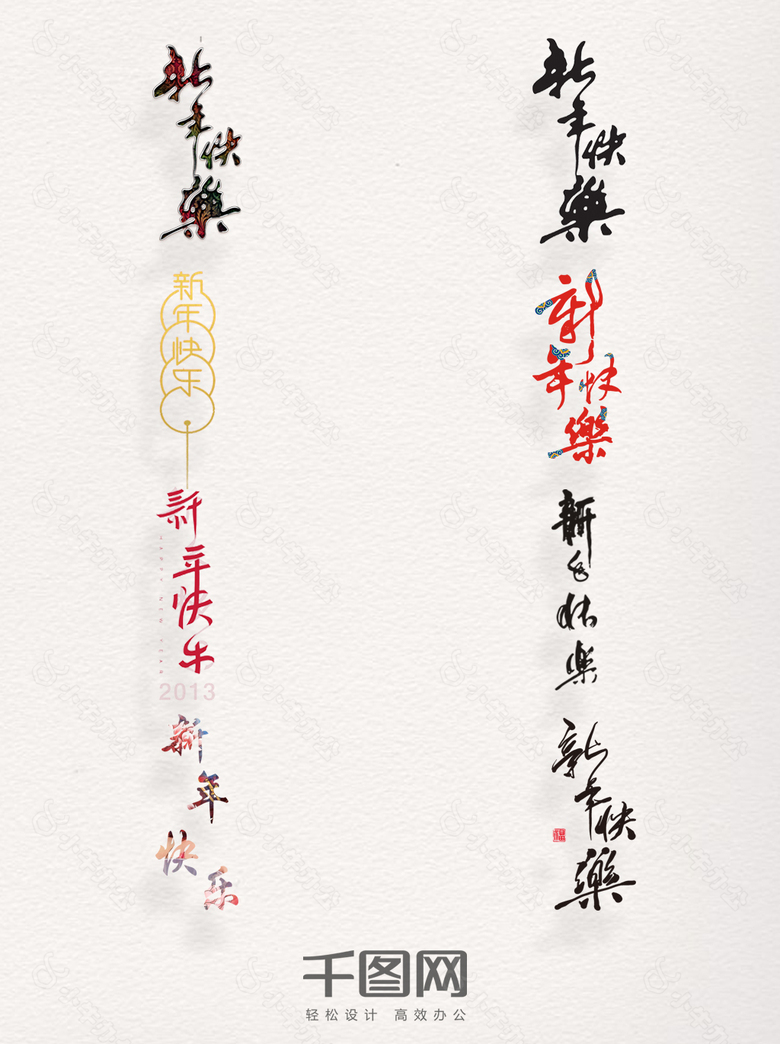 新年快樂
新年快乐
新年快乐
HAPPY NEW YEAR
2013
新年快乐
新年快樂
新年快樂
新年快樂
新年快樂
福
千图网
轻松设计 高效办公